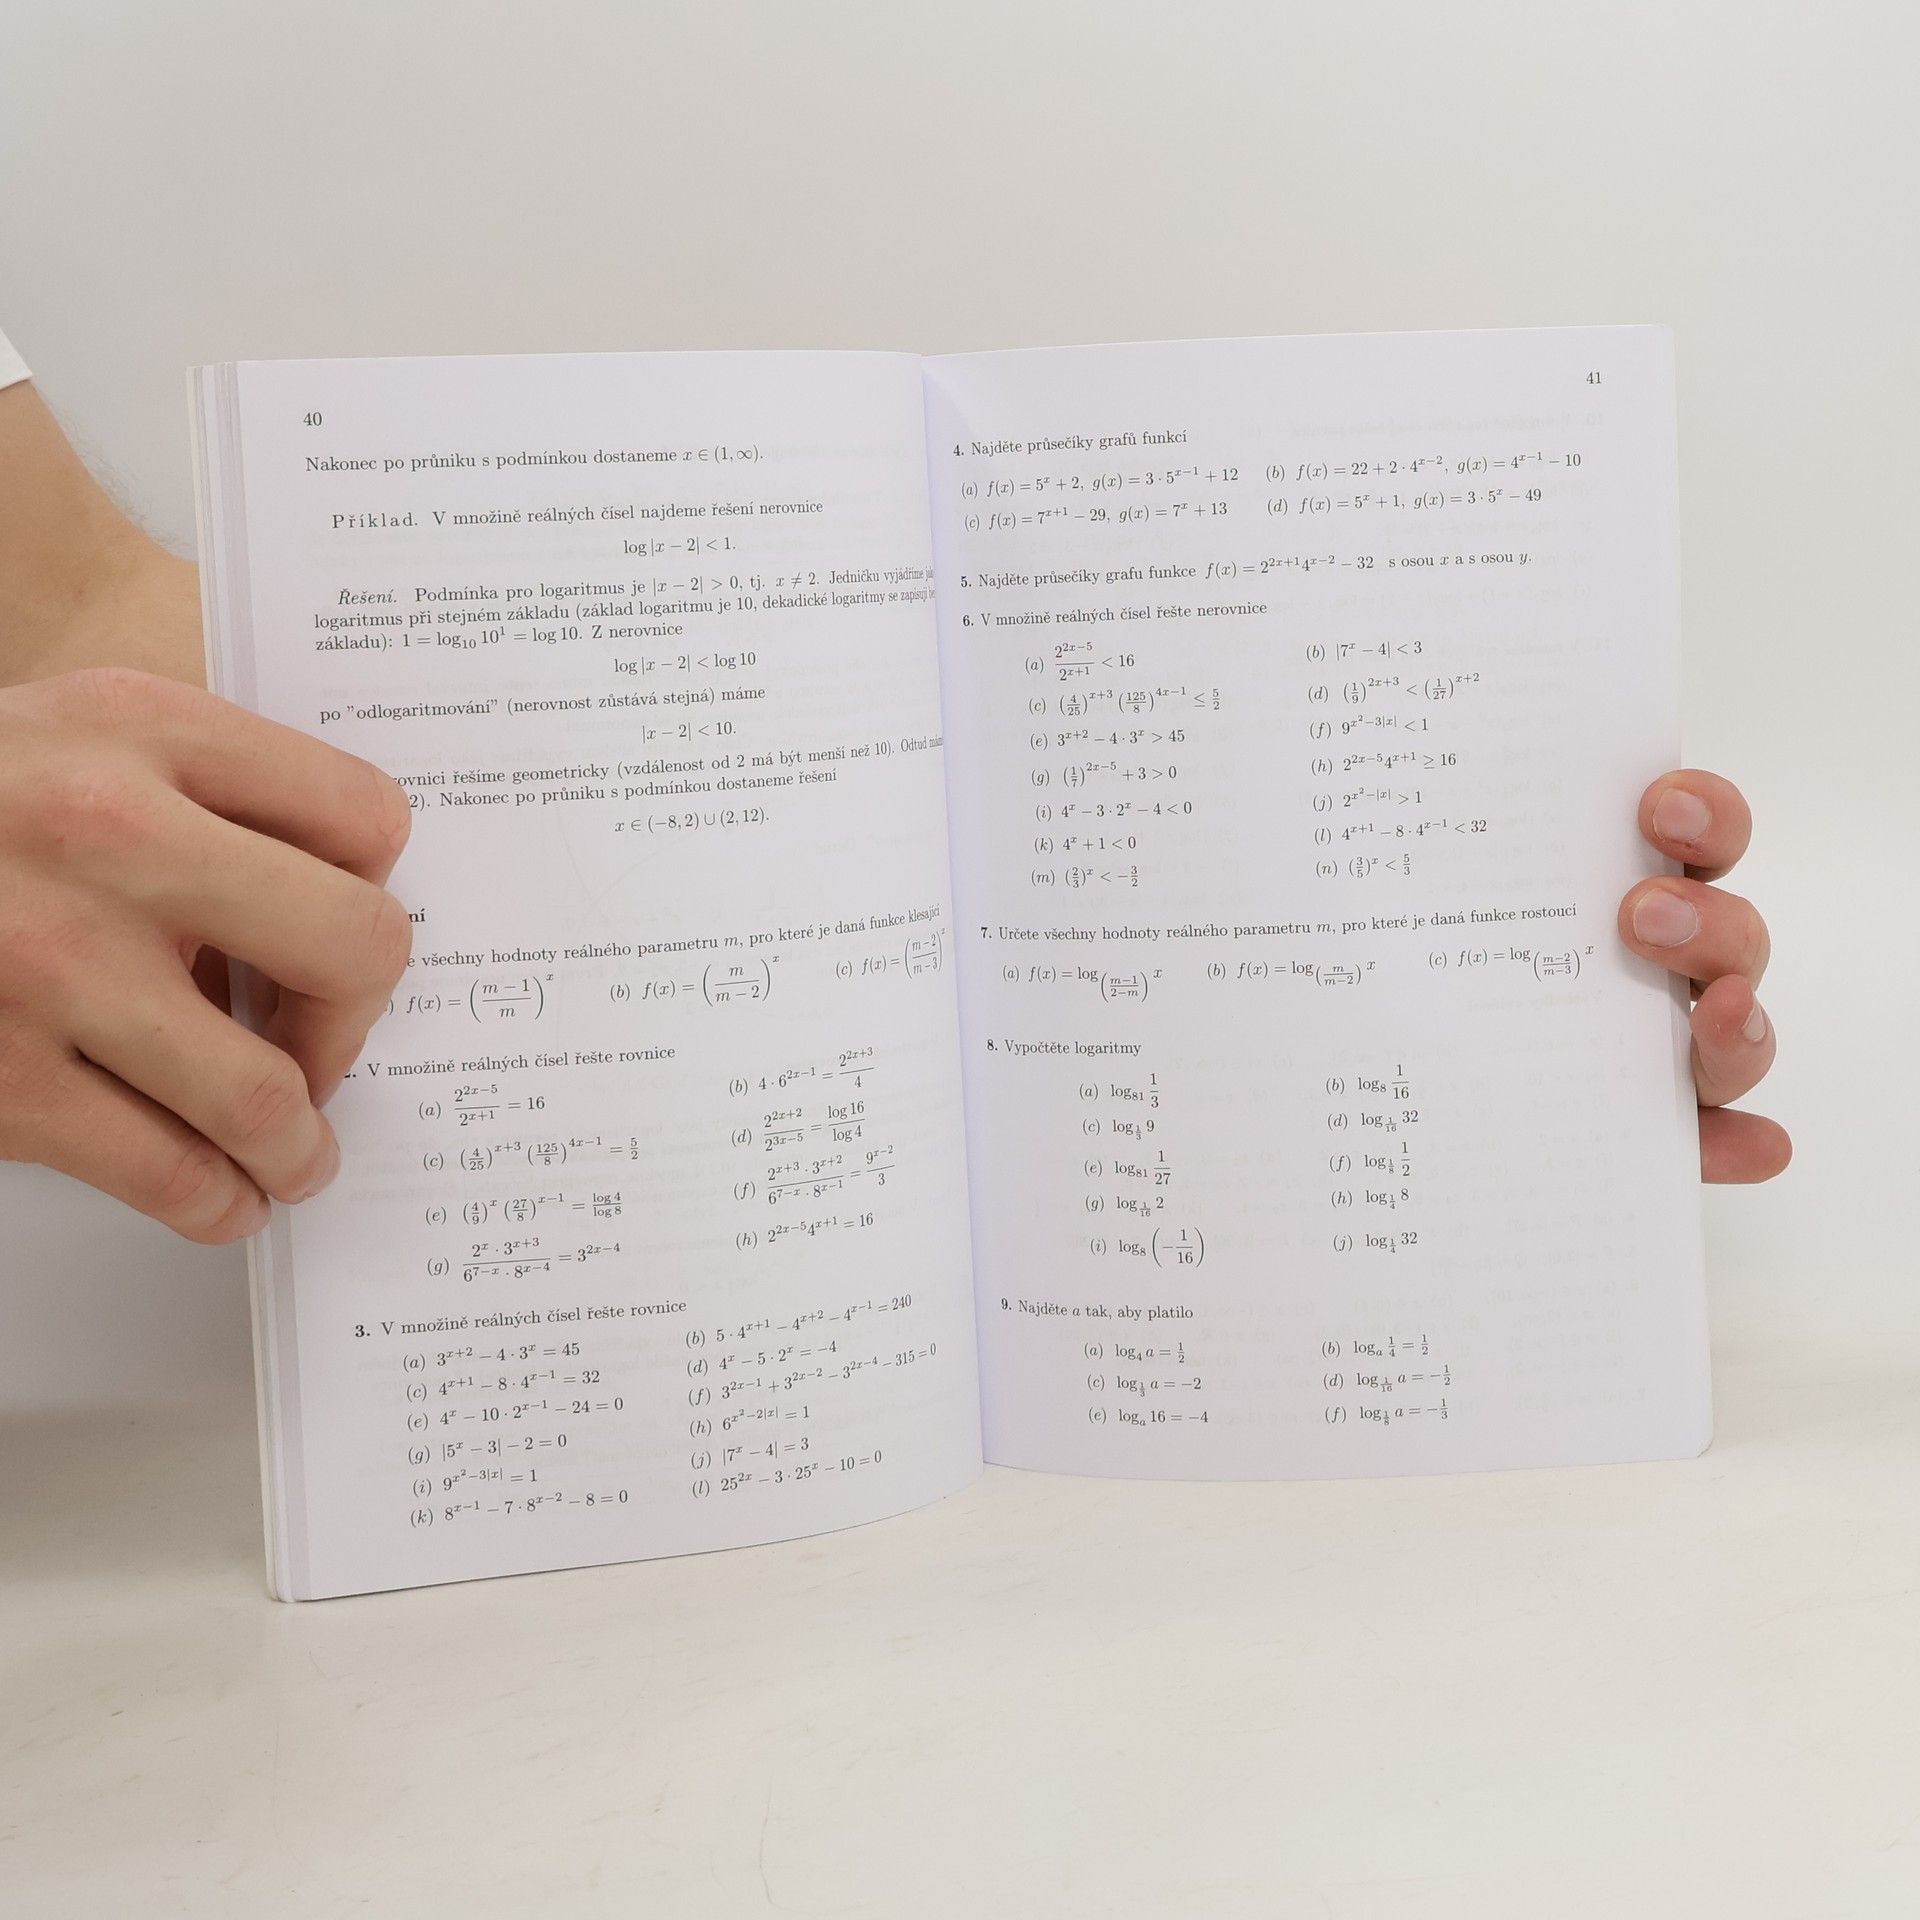 40
Nakonec po průniku s podmínkou dostaneme x ∈ (1, ∞).
Příklad. V množině reálných čísel najdeme řešení nerovnice
log |x − 2| < 1.
Řešení. Podmínka pro logaritmus je |x − 2| > 0, tj. x ≠ 2. Jedničku vyjádříme
logaritmus při stejném základu (základ logaritmu je 10, dekadické logaritmy se zapisují
základu): 1 = log₁₀ 10¹ = log 10. Z nerovnice
log |x − 2| < log 10
po ”odlogaritmování” (nerovnost zůstává stejná) máme
|x − 2| < 10.
rovnici řešíme geometricky (vzdálenost od 2 má být menší než 10). Odtud
2). Nakonec po průniku s podmínkou dostaneme řešení
x ∈ (−8, 2) ∪ (2, 12).
ní
e všechny hodnoty reálného parametru m, pro které je daná funkce klesající
) f(x) = ((m − 1)/m)^x (b) f(x) = (m/(m − 2))^x (c) f(x) = ((m−2)/(m−3))^x
. V množině reálných čísel řešte rovnice
(a) 2^(2x−5)/2^(x+1) = 16 (b) 4 · 6^(2x−1) = 2^(2x+3)/4
(c) (4/25)^(x+3) (125/8)^(4x−1) = 5/2 (d) 2^(2x+2)/2^(3x−5) = log 16/log 4
(e) (4/9)^x (27/8)^(x−1) = log 4/log 8 (f) (2^(x+3) · 3^(x+2))/(6^(7−x) · 8^(x−1)) = 9^(x−2)/3
(g) (2^x · 3^(x+3))/(6^(7−x) · 8^(x−4)) = 3^(2x−4) (h) 2^(2x−5)4^(x+1) = 16
3. V množině reálných čísel řešte rovnice
(a) 3^(x+2) − 4 · 3^x = 45 (b) 5 · 4^(x+1) − 4^(x+2) − 4^(x−1) = 240
(c) 4^(x+1) − 8 · 4^(x−1) = 32 (d) 4^x − 5 · 2^x = −4
(e) 4^x − 10 · 2^(x−1) − 24 = 0 (f) 3^(2x−1) + 3^(2x−2) − 3^(2x−4) − 315 = 0
(g) |5^x − 3| − 2 = 0 (h) 6^(x²−2|x|) = 1
(i) 9^(x²−3|x|) = 1 (j) |7^x − 4| = 3
(k) 8^(x−1) − 7 · 8^(x−2) − 8 = 0 (l) 25^(2x) − 3 · 25^x − 10 = 0
41
4. Najděte průsečíky grafů funkcí
(a) f(x) = 5^x + 2, g(x) = 3 · 5^(x−1) + 12 (b) f(x) = 22 + 2 · 4^(x−2), g(x) = 4^(x−1) − 10
(c) f(x) = 7^(x+1) − 29, g(x) = 7^x + 13 (d) f(x) = 5^x + 1, g(x) = 3 · 5^x − 49
5. Najděte průsečíky grafu funkce f(x) = 2^(2x+1)4^(x−2) − 32 s osou x a s osou y.
6. V množině reálných čísel řešte nerovnice
(a) 2^(2x−5)/2^(x+1) < 16 (b) |7^x − 4| < 3
(c) (4/25)^(x+3) (125/8)^(4x−1) ≤ 5/2 (d) (1/9)^(2x+3) < (1/27)^(x+2)
(e) 3^(x+2) − 4 · 3^x > 45 (f) 9^(x²−3|x|) < 1
(g) (1/7)^(2x−5) + 3 > 0 (h) 2^(2x−5)4^(x+1) ≥ 16
(i) 4^x − 3 · 2^x − 4 < 0 (j) 2^(x²−|x|) > 1
(k) 4^x + 1 < 0 (l) 4^(x+1) − 8 · 4^(x−1) < 32
(m) (2/3)^x < −3/2 (n) (3/5)^x < 5/3
7. Určete všechny hodnoty reálného parametru m, pro které je daná funkce rostoucí
(a) f(x) = log_((m−1)/(2−m)) x (b) f(x) = log_(m/(m−2)) x (c) f(x) = log_((m−2)/(m−3)) x
8. Vypočtěte logaritmy
(a) log₈₁ 1/3 (b) log₈ 1/16
(c) log_(1/3) 9 (d) log_(1/16) 32
(e) log₈₁ 1/27 (f) log_(1/8) 1/2
(g) log_(1/16) 2 (h) log_(1/4) 8
(i) log₈ (−1/16) (j) log_(1/4) 32
9. Najděte a tak, aby platilo
(a) log₄ a = 1/2 (b) log_a 1/4 = 1/2
(c) log_(1/3) a = −2 (d) log_(1/16) a = −1/2
(e) log_a 16 = −4 (f) log_(1/8) a = −1/3